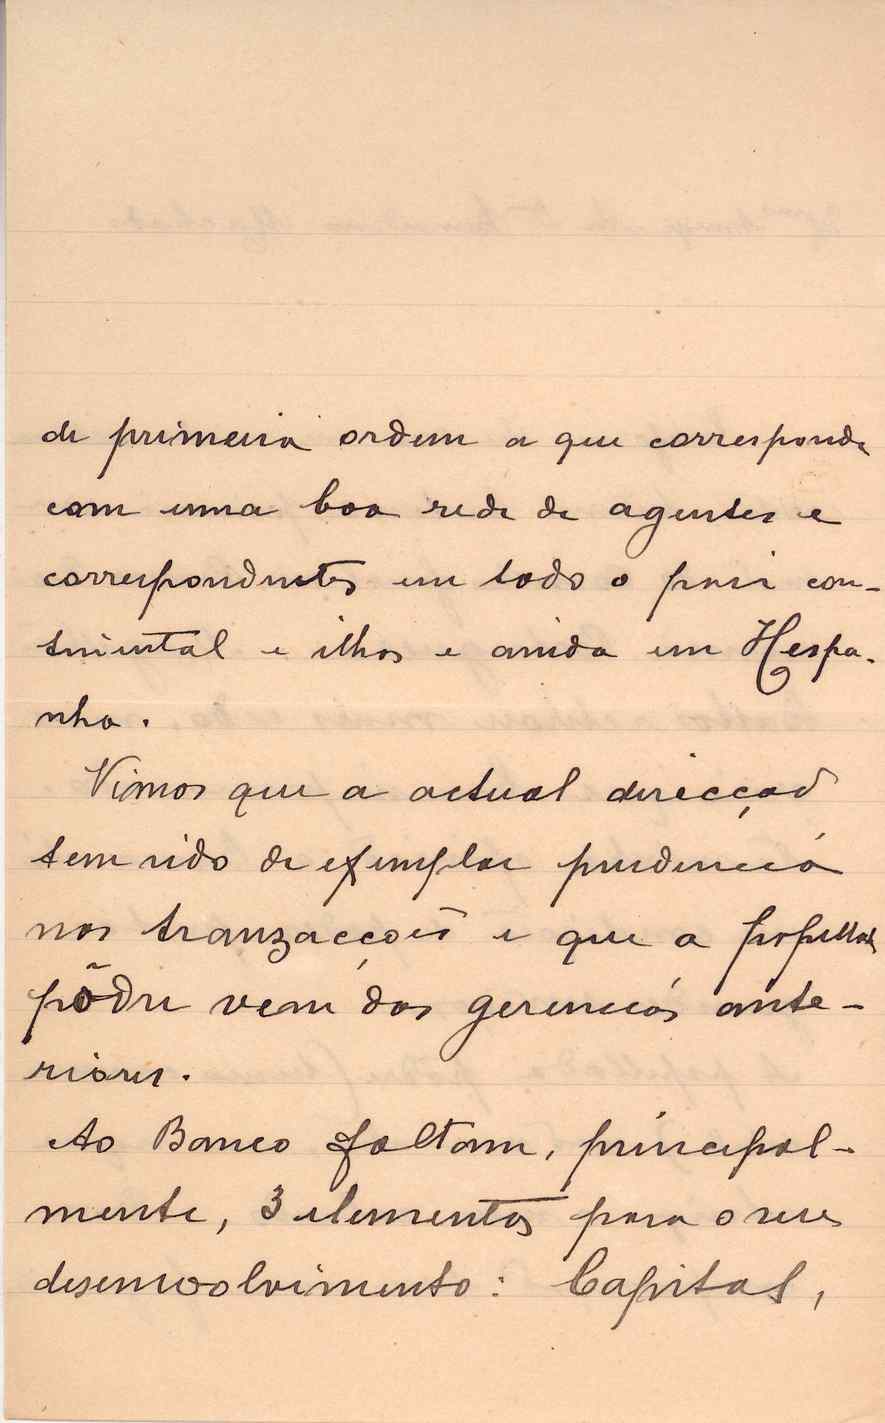 de primeira ordem a que corresponde
com uma boa rede de agentes e
correspondentes em todo o paiz con-
tinental e ilhas e ainda em Hespa-
nha.
Vimos que a actual direcção
tem sido de exemplar prudencia
nas tranzacções e que a papellada
pôdre vem das gerencias ante-
riores.
Ao Banco faltam, principal-
mente, 3 elementos para o seu
desenvolvimento: Capital,